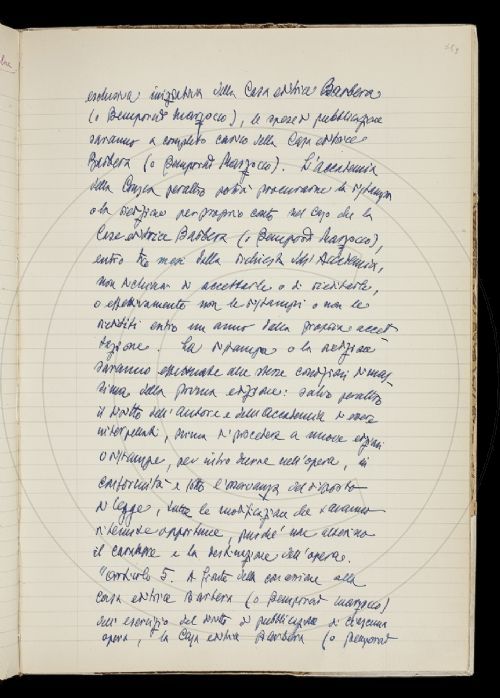 esclusiva iniziativa della Casa editrice Barbera
(o Bemporad Marzocco), le spese di pubblicazione
saranno a completo carico della Casa editrice
Barbera (o Bemporad Marzocco). L'Accademia
della Crusca peraltro potrà provvedere la ristampa
o la riedizione per proprio conto nel caso che la
Casa editrice Barbera (o Bemporad Marzocco),
entro tre mesi dalla richiesta dell'Accademia,
non dichiari di accettarle o di rieditarle,
o effettivamente non le ristampi o non le
riediti entro un anno dalla propria accet-
tazione. La ristampa o la riedizione
saranno effettuate alle stesse condizioni di mas-
sima della prima edizione: salvo peraltro
il diritto dell'autore e dell'Accademia di essere
interpellati, prima di procedere a nuove edizioni
o ristampe, per introdurre nell'opera, in
conformità e sotto l'osservanza del disposto
di legge, tutte le modificazioni che saranno
ritenute opportune, purché non alterino
il carattere e la destinazione dell'opera.
"Articolo 5. A fronte della concessione alla
casa editrice Barbera (o Bemporad Marzocco)
dell'esercizio del diritto di pubblicazione di ciascuna
opera, la Casa editrice Barbera (o Bemporad